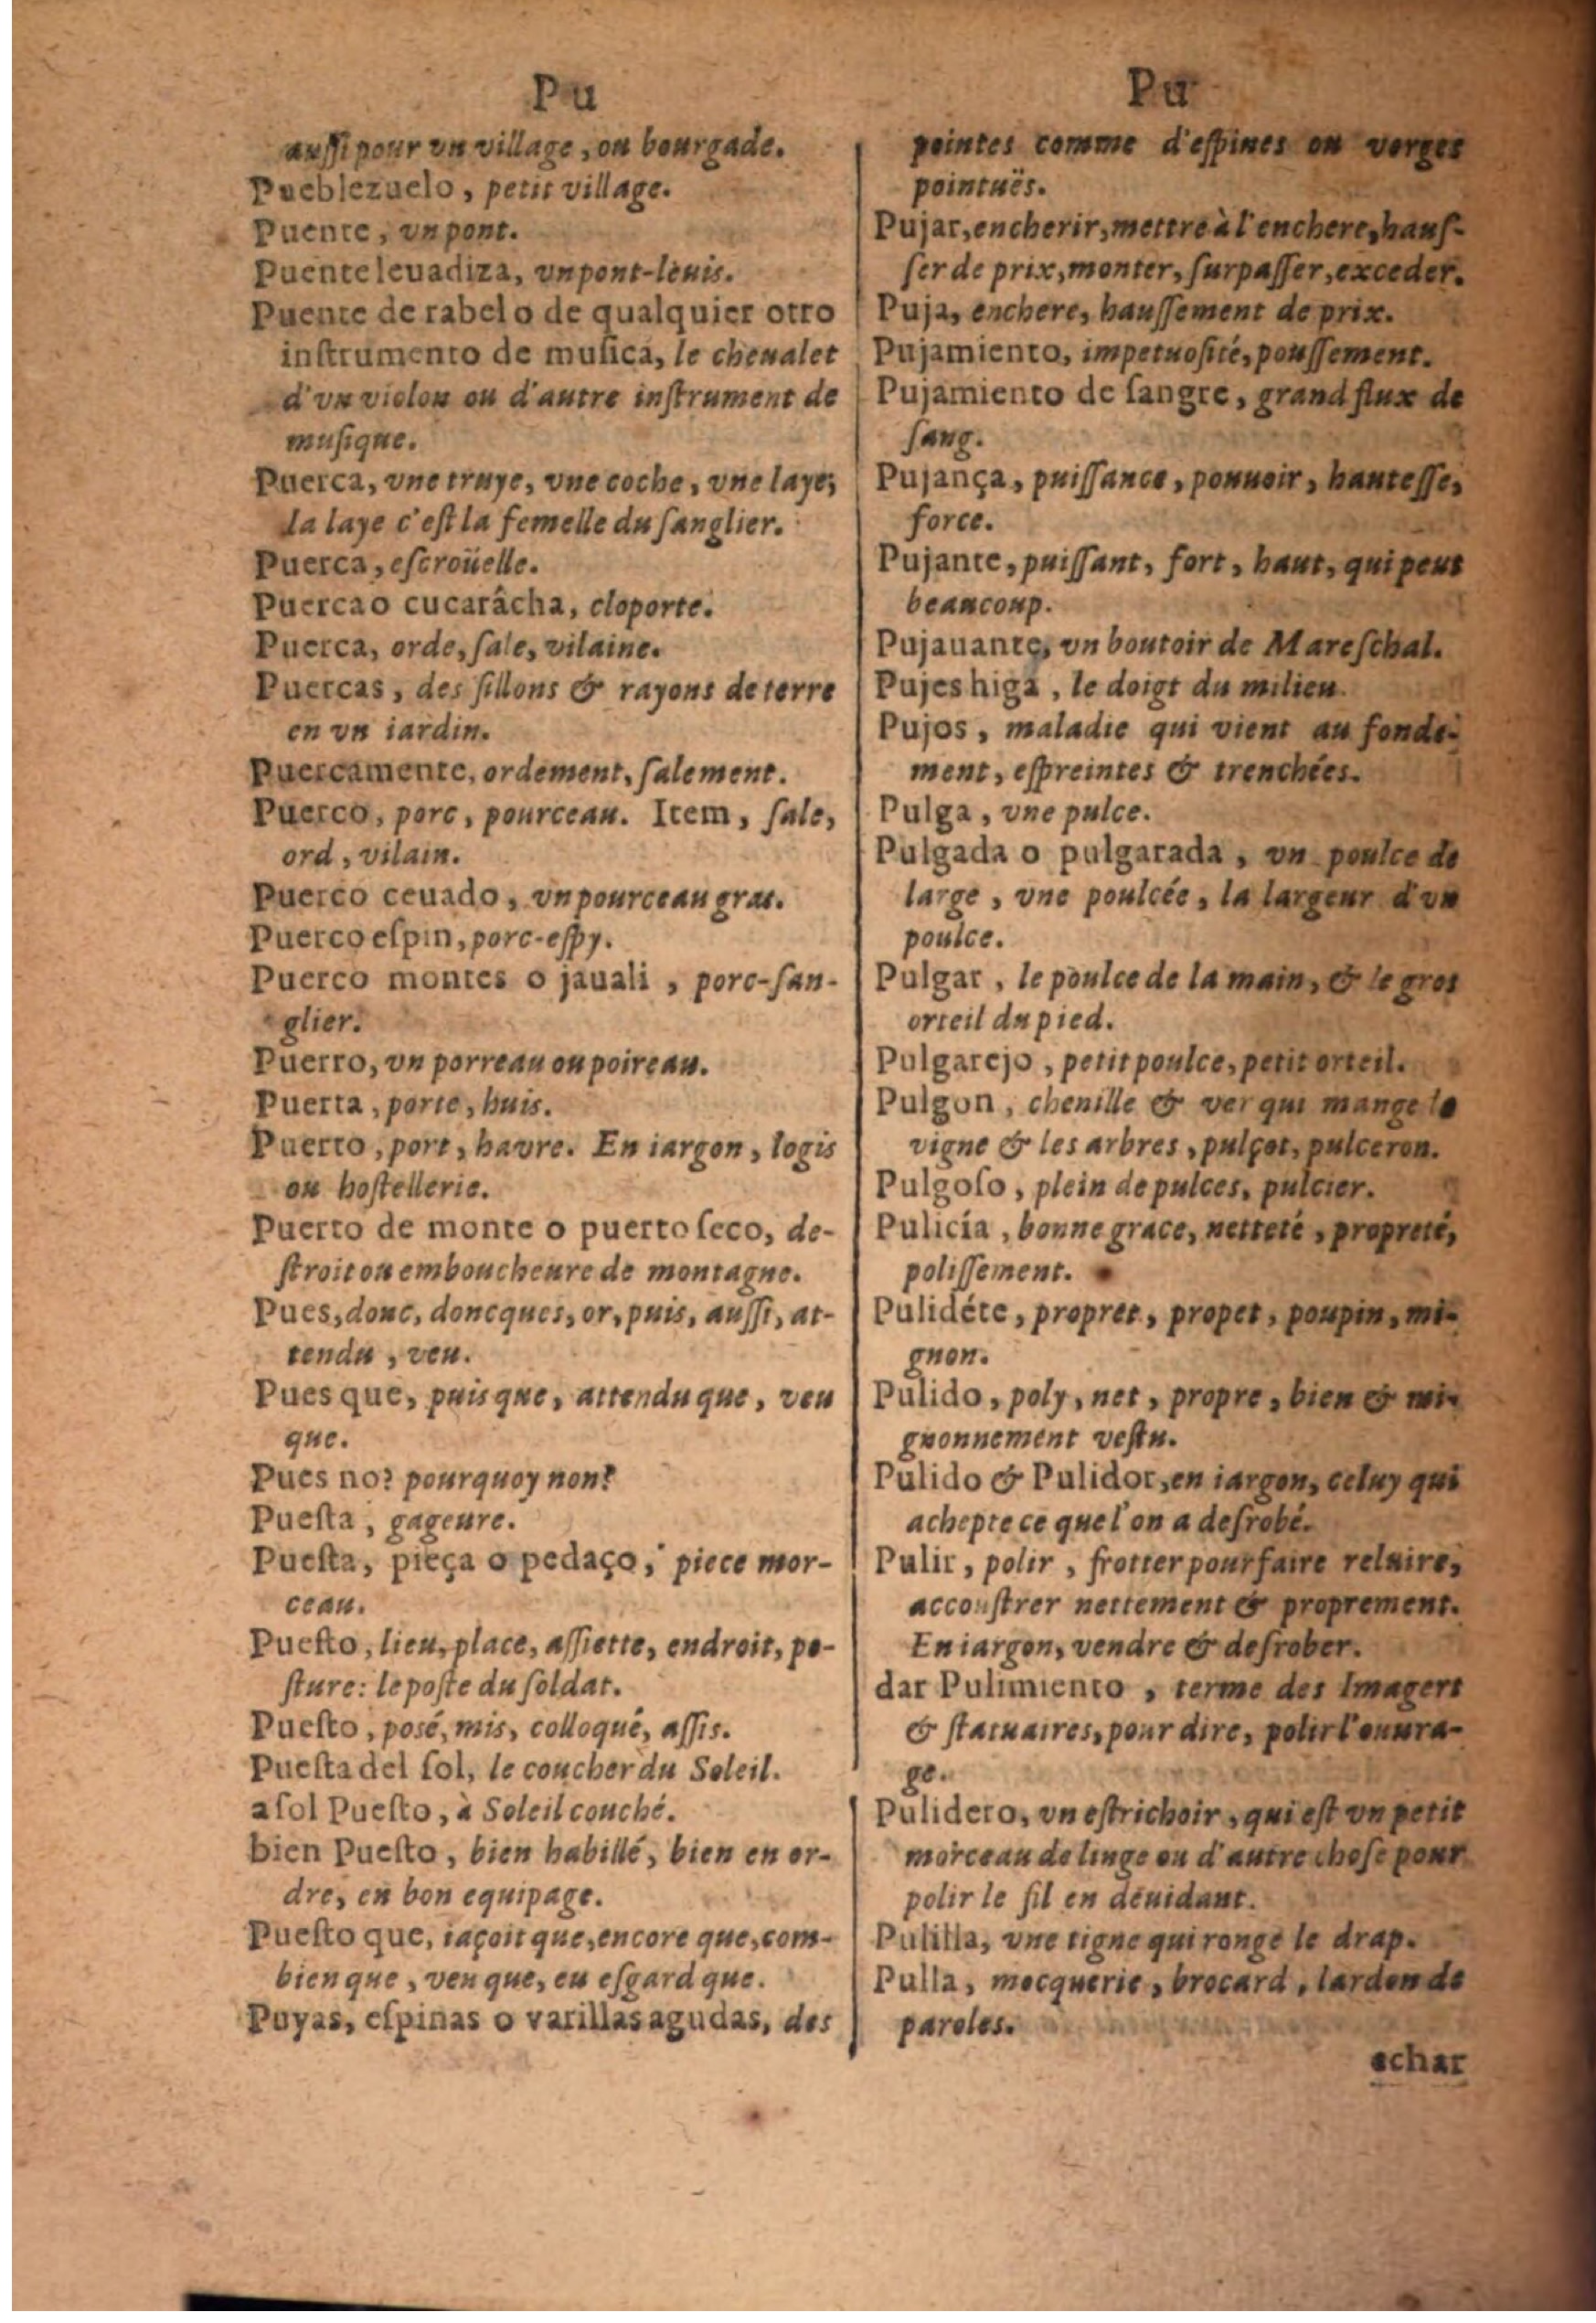 Pu
aussi pour vn village, ou bourgade.
Pueblezuelo, petit village.
Puente, vn pont.
Puente leuadiza, vn pont-leuis.
Puente de rabel o de qualquier otro
instrumento de musica, le cheualet
d'vn violon ou d'autre instrument de
musique.
Puerca, vne truye, vne coche, vne laye,
la laye c'est la femelle du sanglier.
Puerca, escroüelle.
Puerca o cucarâcha, cloporte.
Puerca, orde, sale, vilaine.
Puercas, des sillons & rayons de terre
en vn iardin.
Puercamente, ordement, salement.
Puerco, porc, pourceau. Item, sale,
ord, vilain.
Puerco ceuado, vn pourceau gras.
Puerco espin, porc-espy.
Puerco montes o jauali, porc-san-
glier.
Puerro, vn porreau ou poireau.
Puerta, porte, huis.
Puerto, port, havre. En iargon, logis
ou hostellerie.
Puerto de monte o puerto seco, de-
stroit ou emboucheure de montagne.
Pues, donc, doncques, or, puis, aussi, at-
tendu, veu.
Pues que, puis que, attendu que, veu
que.
Pues no? pourquoy non?
Puesta, gageure.
Puesta, pieça o pedaço, piece mor-
ceau.
Puesto, lieu, place, assiette, endroit, po-
sture: le poste du soldat.
Puesto, posé, mis, colloqué, assis.
Puesta del sol, le coucher du Soleil.
a sol Puesto, à Soleil couché.
bien Puesto, bien habillé, bien en or-
dre, en bon equipage.
Puesto que, iaçoit que, encore que, com-
bien que, veu que, eu esgard que.
Puyas, espinas o varillas agudas, des
Pu
pointes comme d'espines ou verges
pointuës.
Pujar, encherir, mettre à l'enchere, haus-
ser de prix, monter, surpasser, exceder.
Puja, enchere, haussement de prix.
Pujamiento, impetuosité, poussement.
Pujamiento de sangre, grand flux de
sang.
Pujança, puissance, pouuoir, hautesse,
force.
Pujante, puissant, fort, haut, qui peut
beaucoup.
Pujauante, vn boutoir de Mareschal.
Pujes higa, le doigt du milieu.
Pujos, maladie qui vient au fonde-
ment, espreintes & trenchées.
Pulga, vne pulce.
Pulgada o pulgarada, vn poulce de
large, vne poulcée, la largeur d'vn
poulce.
Pulgar, le poulce de la main, & le gros
orteil du pied.
Pulgarejo, petit poulce, petit orteil.
Pulgon, chenille & ver qui mange la
vigne & les arbres, pulçot, pulceron.
Pulgoso, plein de pulces, pulcier.
Pulicía, bonne grace, netteté, propreté,
polissement.
Pulidéte, propret, propet, poupin, mi-
gnon.
Pulido, poly, net, propre, bien & mi-
gnonnement vestu.
Pulido & Pulidor, en iargon, celuy qui
achepte ce que l'on a desrobé.
Pulir, polir, frotter pour faire reluire,
accoustrer nettement & proprement.
En iargon, vendre & desrober.
dar Pulimiento, terme des Imagers
& statuaires, pour dire, polir l'ouura-
ge.
Pulidero, vn estrichoir, qui est vn petit
morceau de linge ou d'autre chose pour
polir le fil en deuidant.
Pulilla, vne tigne qui ronge le drap.
Pulla, mocquerie, brocard, lardon de
paroles.
echar